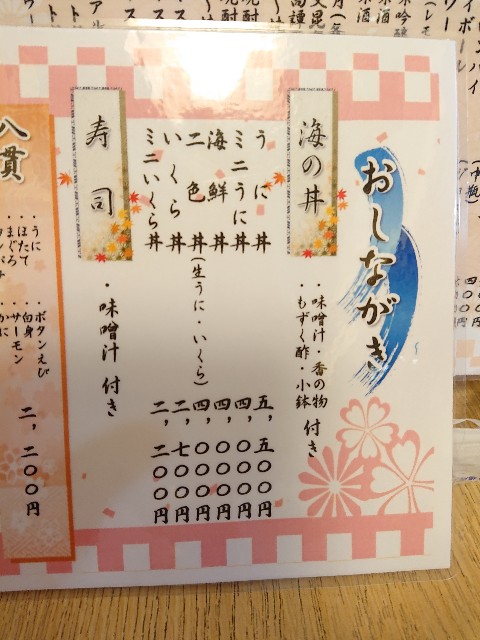 おしながき
海の丼
・味噌汁・香の物
もずく酢・小鉢 付き
うに丼 五,五〇〇円
ミニうに丼 四,〇〇〇円
海鮮丼 四,〇〇〇円
二色丼(生うに・いくら) 四,〇〇〇円
いくら丼 二,七〇〇円
ミニいくら丼 二,〇〇〇円
寿司
・味噌汁 付き
八貫
・うに
・ほたて
・まぐろ
・ボタンえび
・白身
・サーモン
・かに
二,二〇〇円